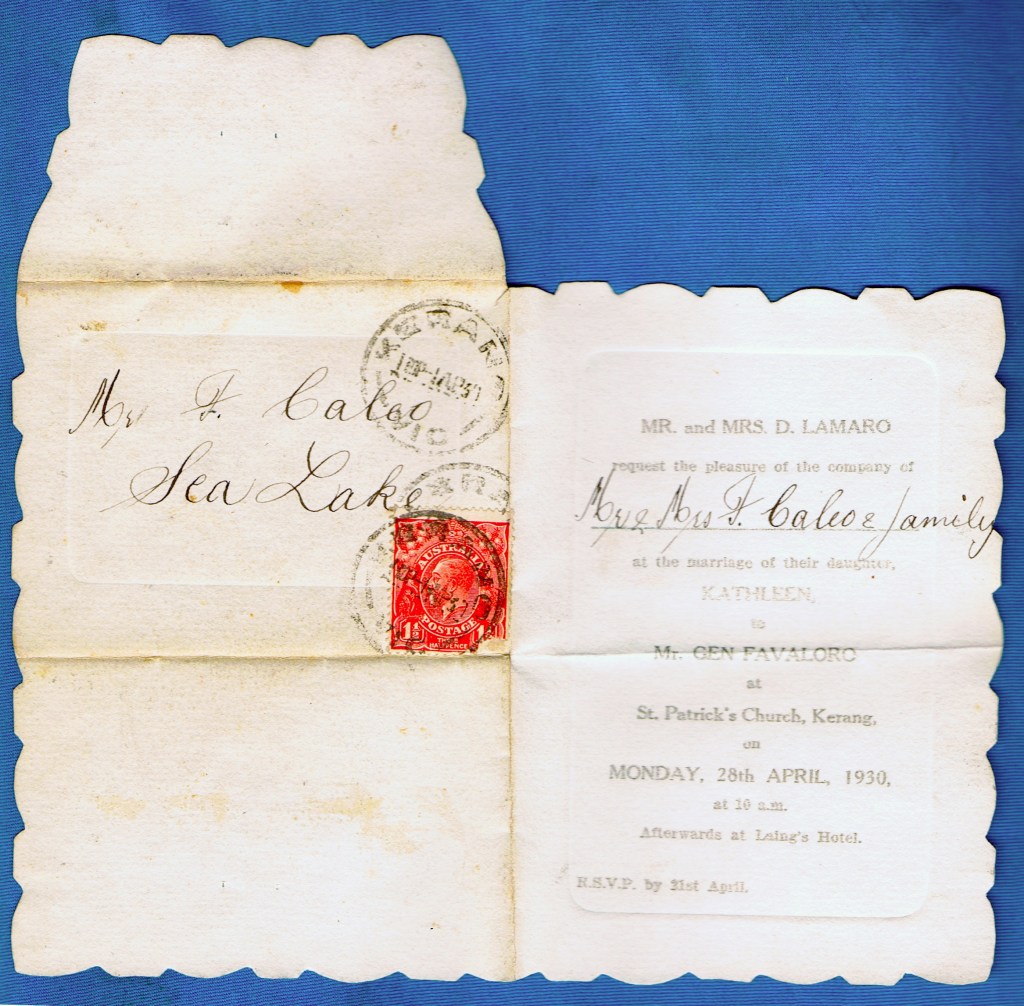 KERANG
VIC
Mr F. Caleo
Sea Lake
AUSTRALIA
POSTAGE
1½ 1½
THREE
HALFPENCE
MR. and MRS. D. LAMARO
request the pleasure of the company of
Mr & Mrs F. Caleo & family
at the marriage of their daughter,
KATHLEEN,
to
Mr. GEN FAVALORO
at
St. Patrick's Church, Kerang,
on
MONDAY, 28th APRIL, 1930,
at 10 a.m.
Afterwards at Laing's Hotel.
R.S.V.P. by 21st April.